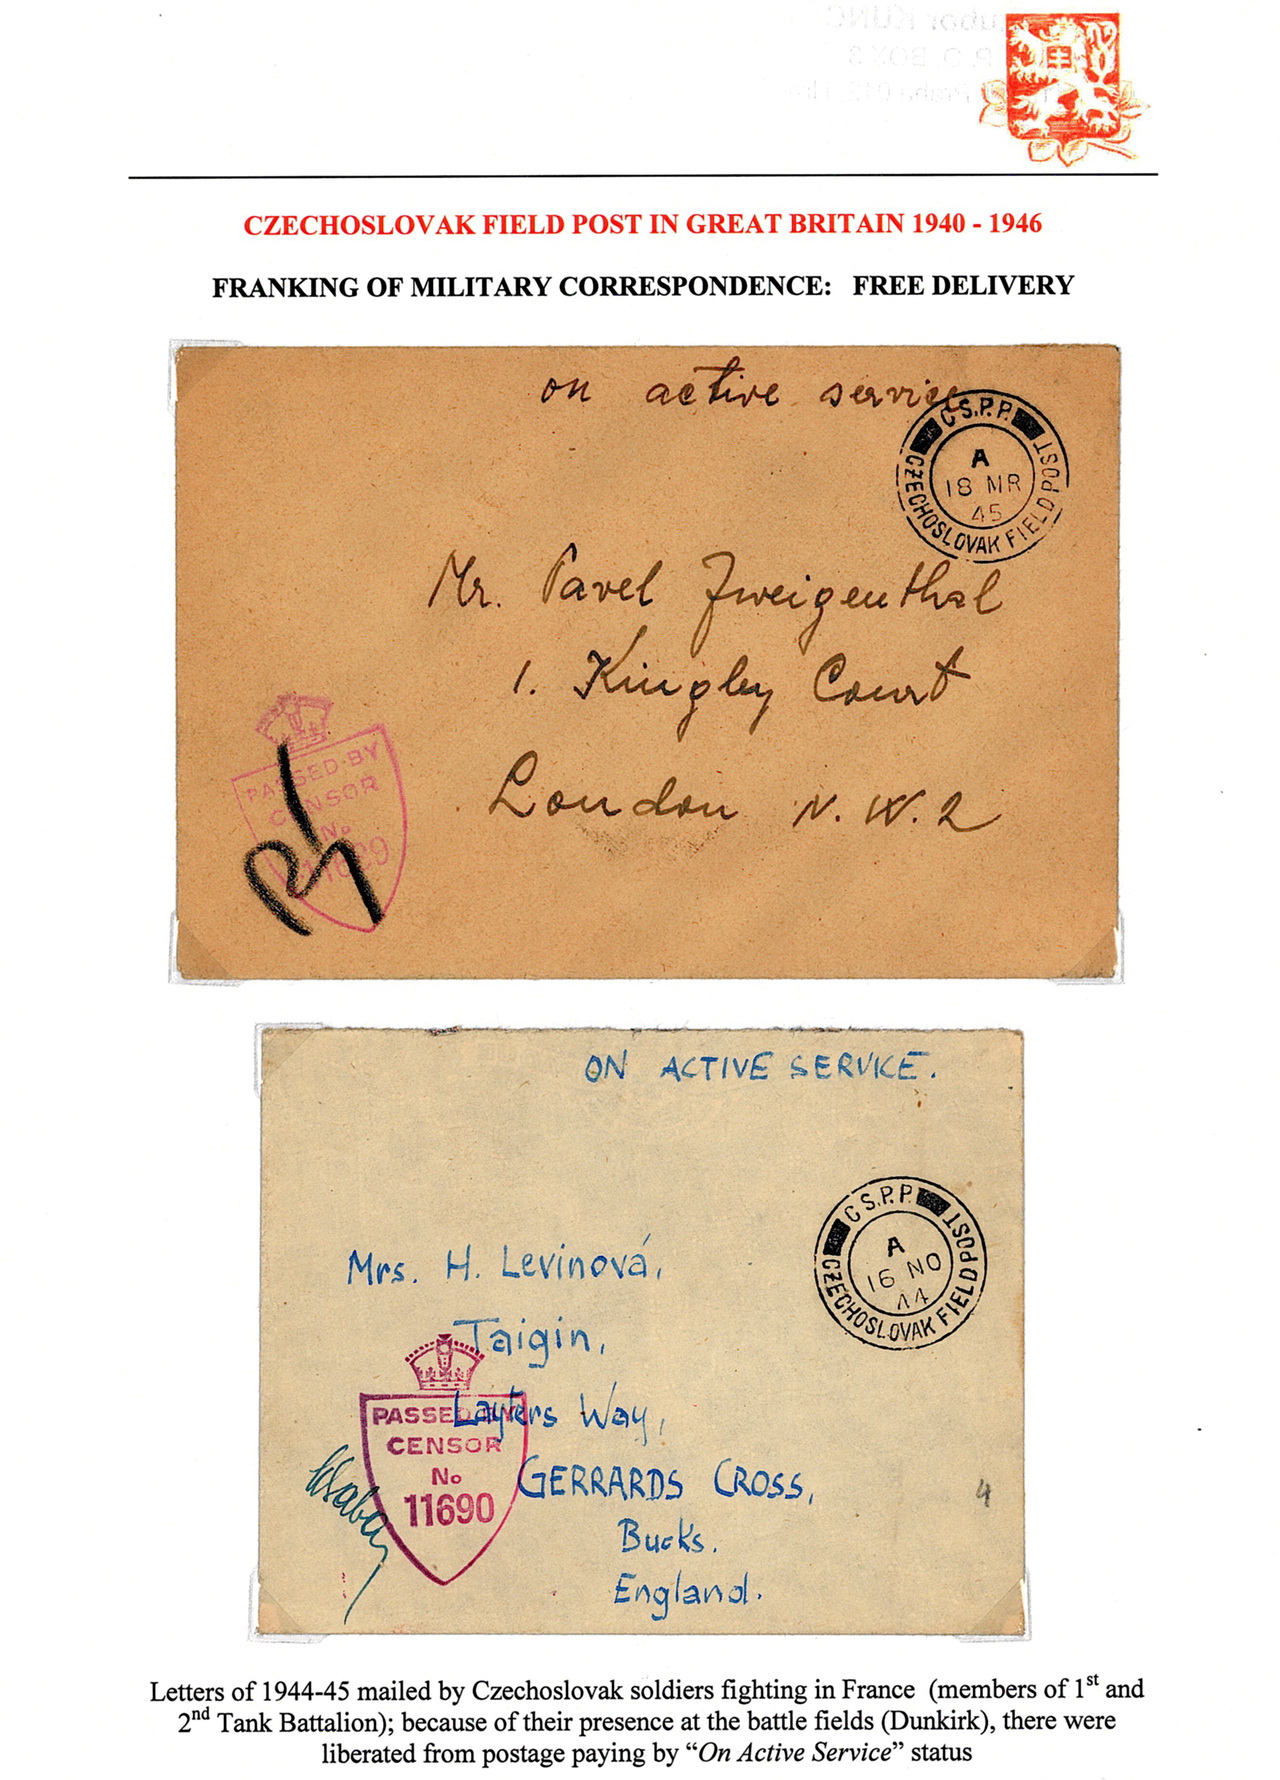 CZECHOSLOVAK FIELD POST IN GREAT BRITAIN 1940 - 1946
FRANKING OF MILITARY CORRESPONDENCE: FREE DELIVERY
on active service
C.S.P.P.
CZECHOSLOVAK FIELD POST
A
18 MR
45
Mr. Pavel Zweigenthal
1. Kingley Court
London N.W.2
PASSED BY
CENSOR
No
ON ACTIVE SERVICE.
C.S.P.P.
CZECHOSLOVAK FIELD POST
A
16 NO
44
Mrs. H. Levinová,
Taigin,
Layters Way,
GERRARDS CROSS,
Bucks.
England.
PASSED BY
CENSOR
No
11690
4
Letters of 1944-45 mailed by Czechoslovak soldiers fighting in France (members of 1st and
2nd Tank Battalion); because of their presence at the battle fields (Dunkirk), there were
liberated from postage paying by “On Active Service” status